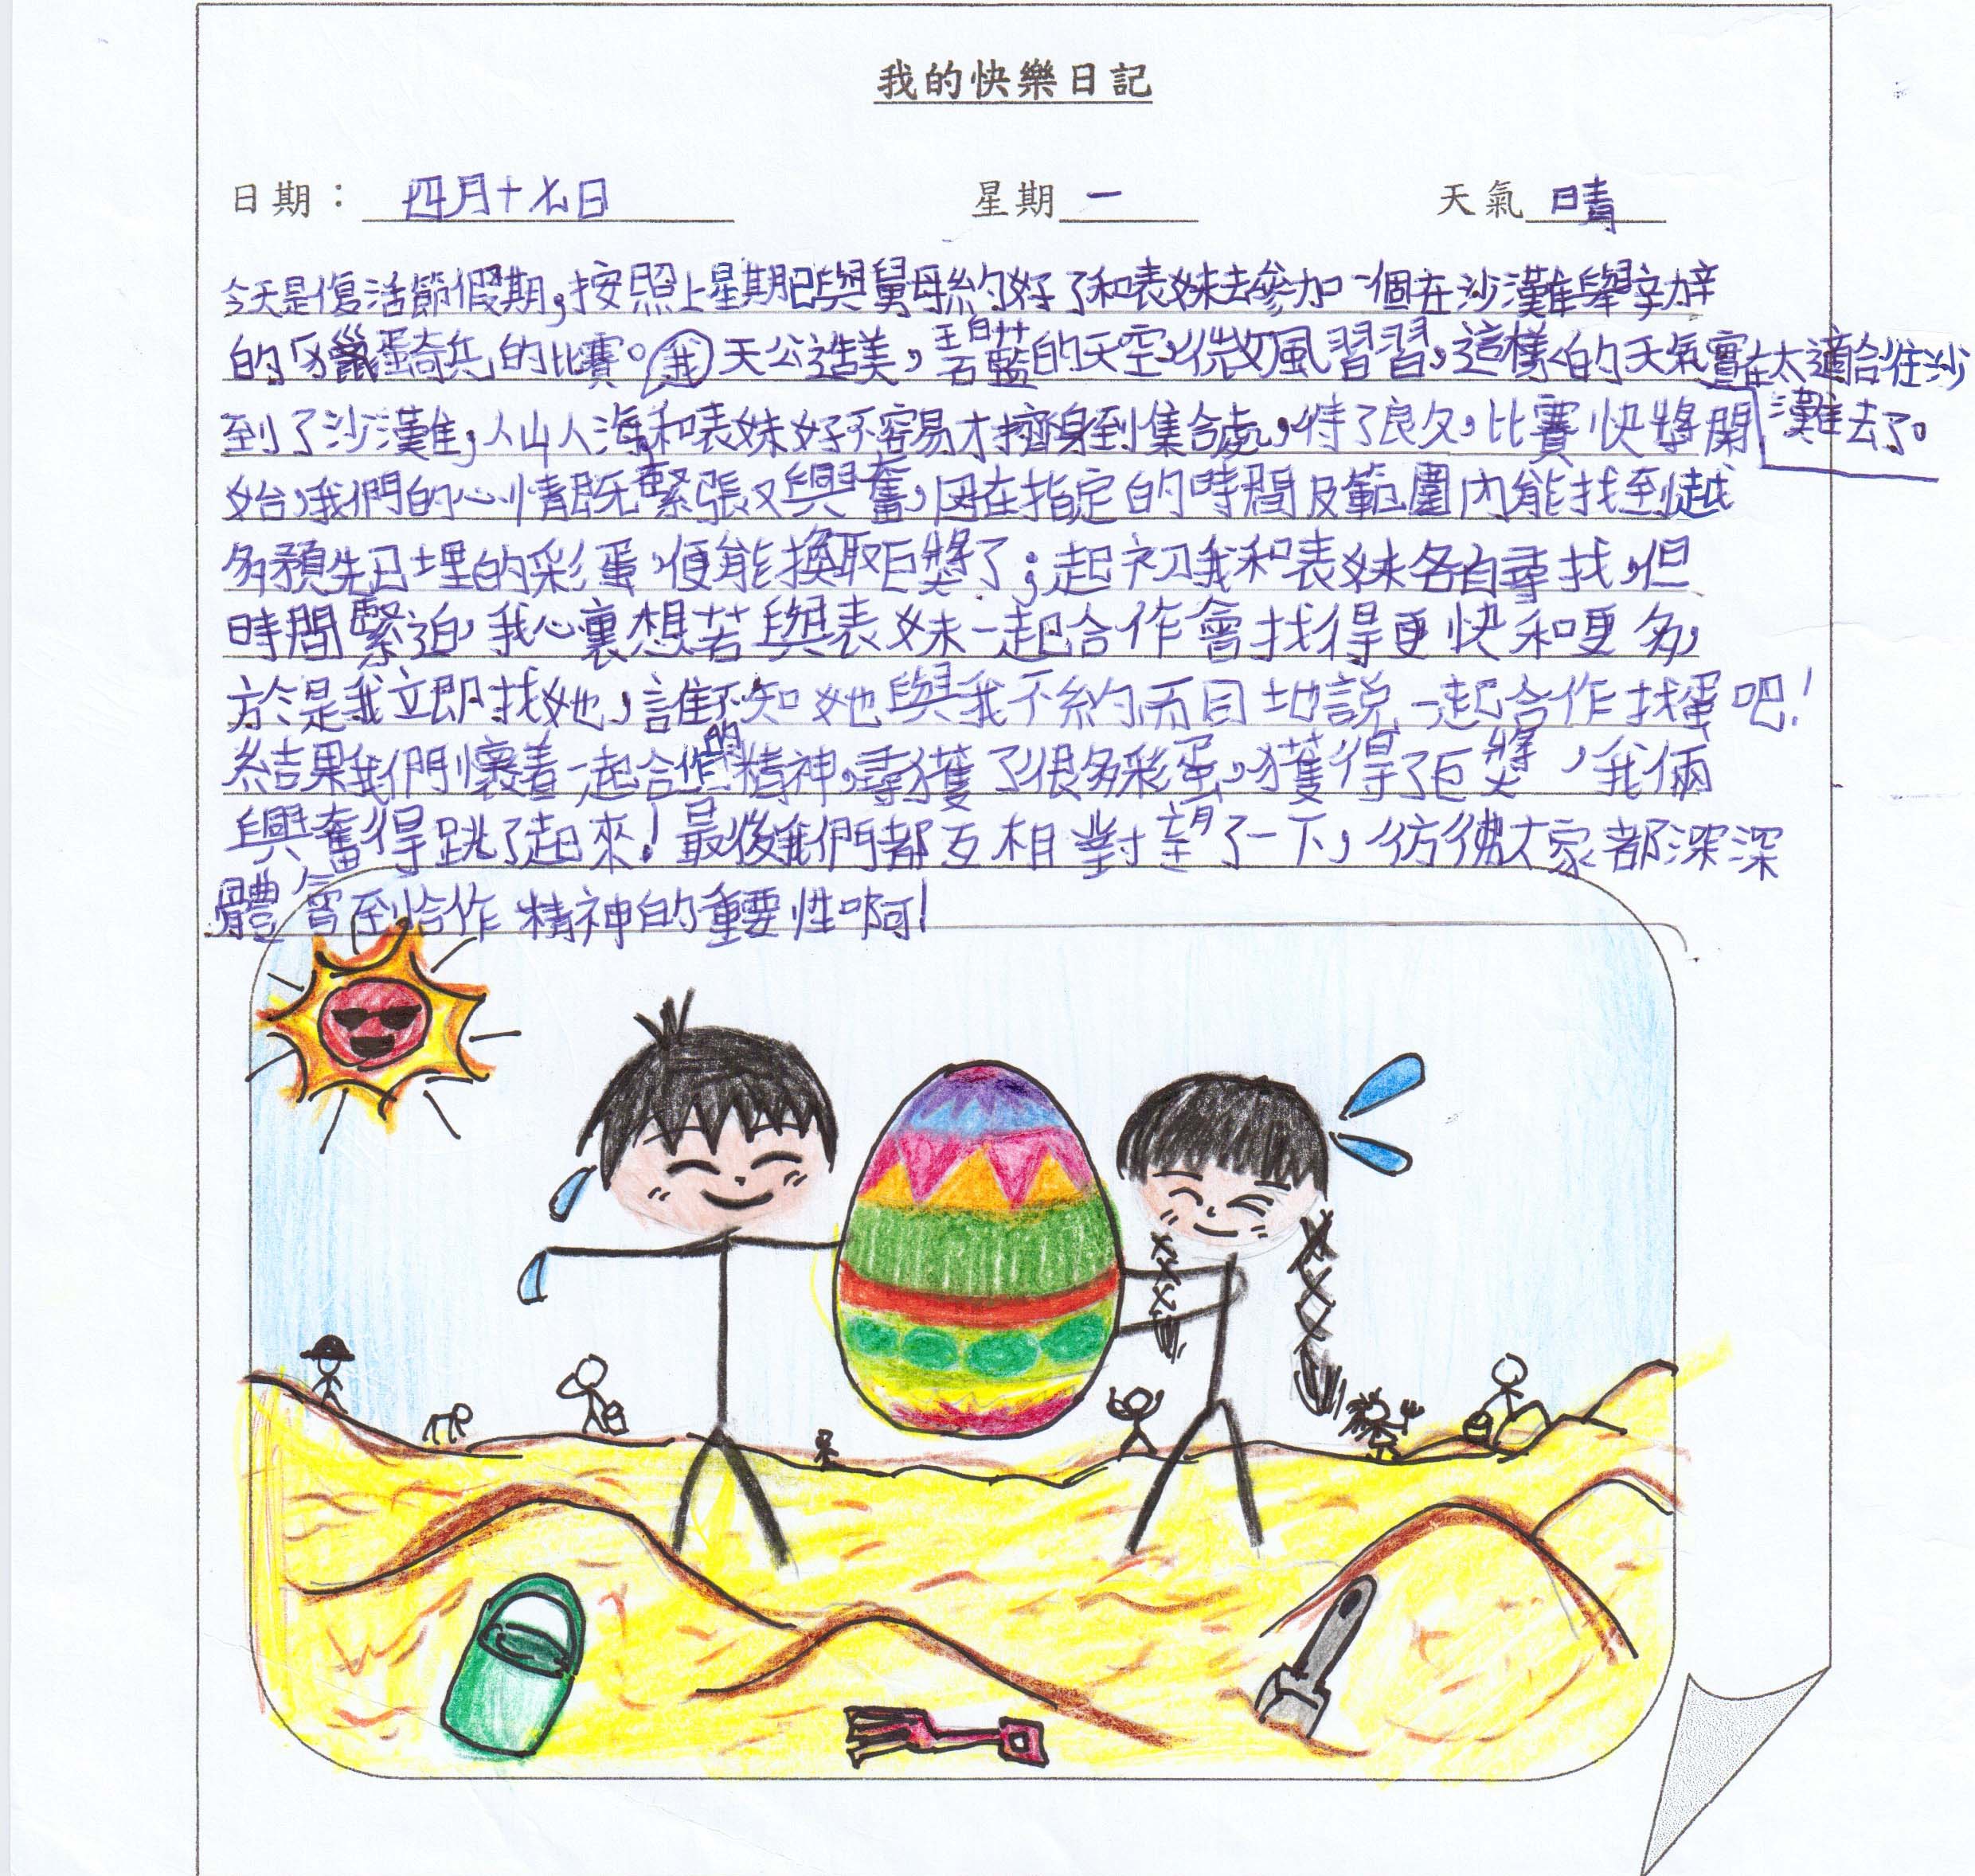 我的快樂日記
日期：四月十七日 星期一 天氣 晴
今天是復活節假期，按照上星期已與舅母約好了和表妹去參加一個在沙灘舉辦
的「獵蛋奇兵」的比賽。天公造美，碧藍的天空，微風習習，這樣的天氣實在太適合往沙
灘去了。
到了沙灘，人山人海，和表妹好不容易才擠身到集合處，待了良久，比賽快將開
始，我們的心情既緊張又興奮，因在指定的時間及範圍內能找到越
多預先已埋的彩蛋，便能換取巨獎了；起初我和表妹各自尋找，但
時間緊迫，我心裏想若與表妹一起合作會找得更快和更多，
於是我立即找她，誰不知她與我不約而同地說一起合作找蛋吧！
結果我們懷着一起合作的精神，尋獲了很多彩蛋，獲得了巨獎，我倆
興奮得跳了起來！最後我們都互相對望了一下，彷彿大家都深深
體會到合作精神的重要性啊！